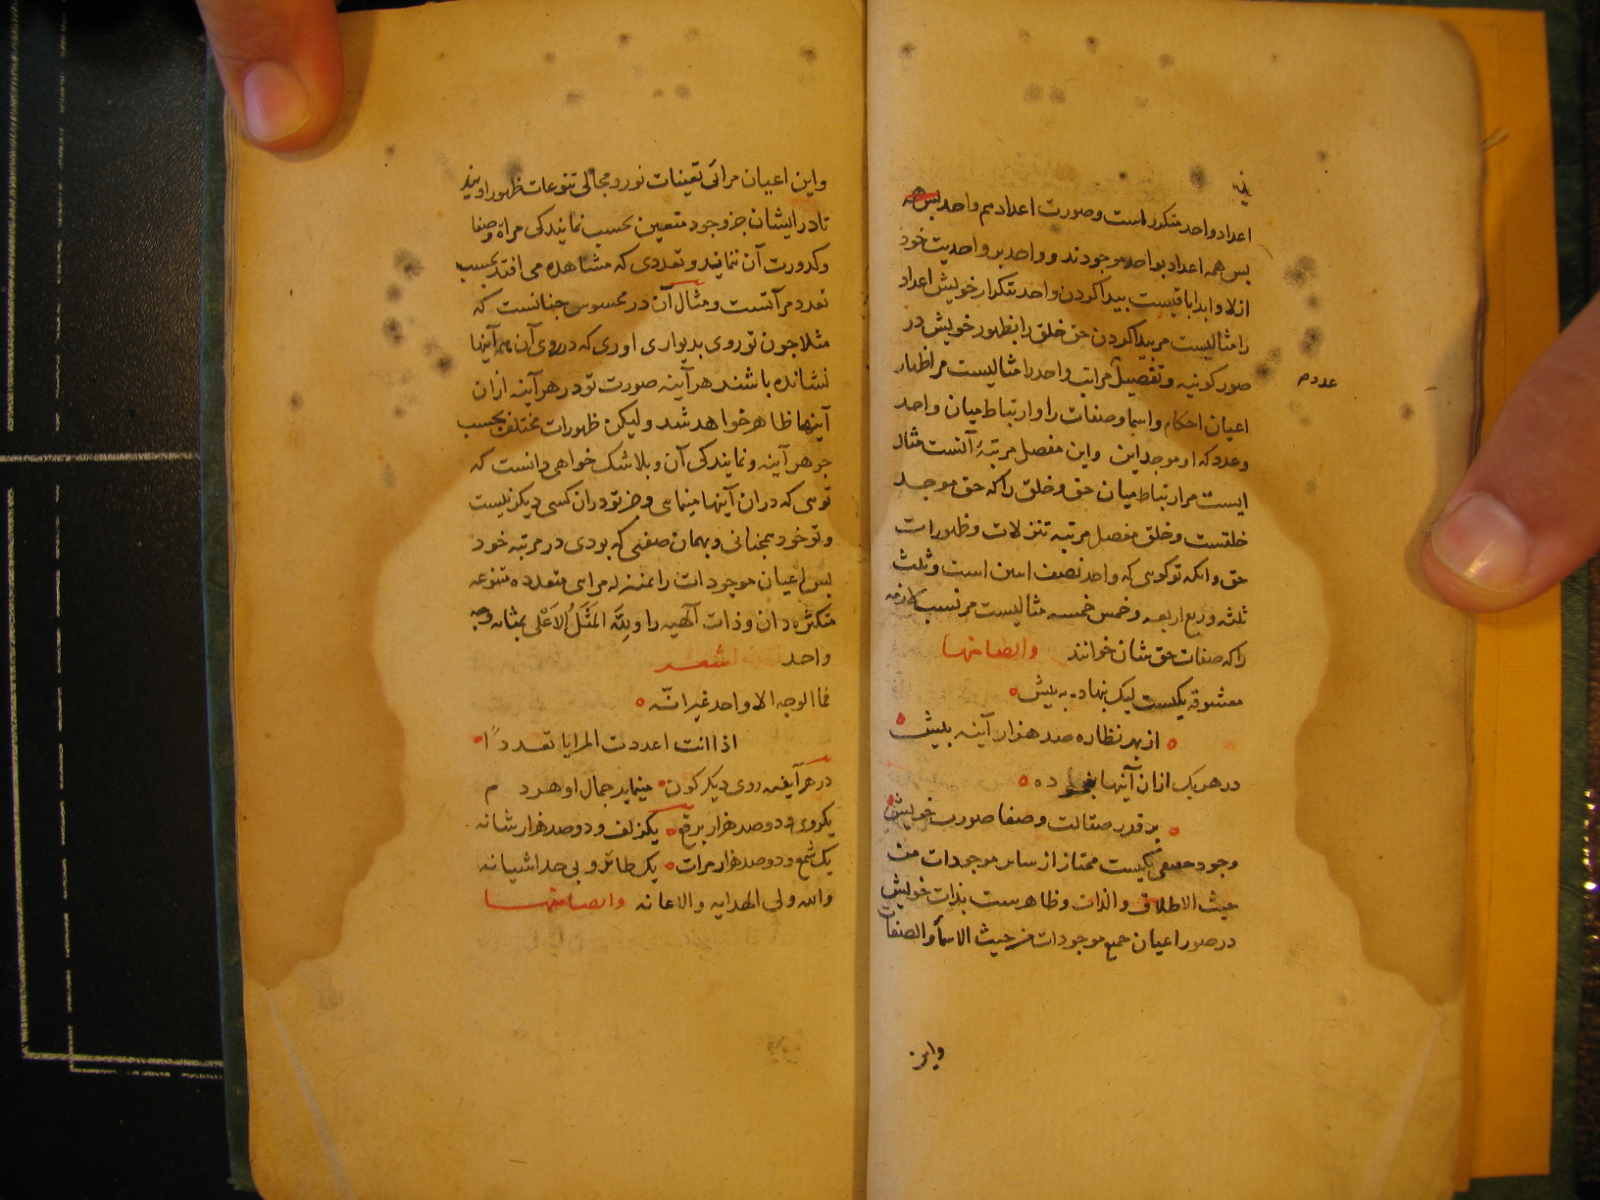 اعداد واحد متکرر است و صورت اعداد هم واحد پس
پس همه اعداد بواحد موجودند و واحد بر واحدیت خود
ازلا و ابدا باقیست پیدا کردن واحد بتکرار خویش اعداد
را مثالیست مر پیدا کردن حق خلق را بظهور خویش در
صور کونیه و تفصیل مراتب واحد را مثالیست مر اظهار
عدد مر
اعیان احکام و اسما و صفات را و ارتباط میان واحد
و عدد که او موجد این و این مفصل مرتبهٔ آنست مثال
ایست مر ارتباط میان حق و خلق را که حق موجد
خلقست و خلق مفصل مرتبه تنزلات و ظهورات
حق و انکه تو کویی که واحد نصف اثنین است و ثلث
ثلثه و ربع اربعه و خمس خمسه مثالیست مر نسب
را که صفات حق شان خوانند وایضا منها
معشوقه یکیست لیک بنهاده به پیش
از بهر نظاره صد هزار آینه بیش
در هر یک ازان آینها بنموده
بر قدر صقالت و صفا صورت خویش
وجود حقیقی یکیست ممتاز از سایر موجودات من
حیث الاطلاق و الذات و ظاهرست بذات خویش
در صور اعیان جمیع موجودات من حیث الاسما و الصفات
واین
واین اعیان مرائی تعینات نور و مجالی تنوعات ظهور اویند
تا در ایشان جز وجود متعین بحسب نمایندکی مراة و صفا
و کدورت آن ننماید و تعددی که مشاهده می افتد بحسب
تعدد مرآتست و مثال آن در محسوس چنانست که
مثلا چون تو روی بدیواری اوری که در روی آن همه آینها
نشانده باشند هر آینه صورت تو در هر آینه ازان
آینها ظاهر خواهد شد و لیکن ظهورات مختلف بحسب
جوهر آینه و نمایندکی آن و بلا شک خواهی دانست که
تویی که دران آینها مینمایی و جز تو دران کسی دیکر نیست
و تو خود همچنانی و بهمان صفتی که بودی در مرتبه خود
پس اعیان موجودات را بمنزله مرایی متعدده متنوعه
متکثره دان و ذات آلهیه را وَلِلَّهِ المَثَلُ الاَعْلی بمثابه وجه
واحد شعر
فما الوجه الا واحد غیر انّه
اذا انت اعددت المرایا تعدداً
در هر آینه روی دیکر کون مینماید جمال او هر دم
یکروی و دوصد هزار برقع یک زلف و دوصد هزار شانه
یک شمع و دوصد هزار مرات یک طائر و بی حد آشیانه
والله ولی الهدایه و الاعانه وایضا منها